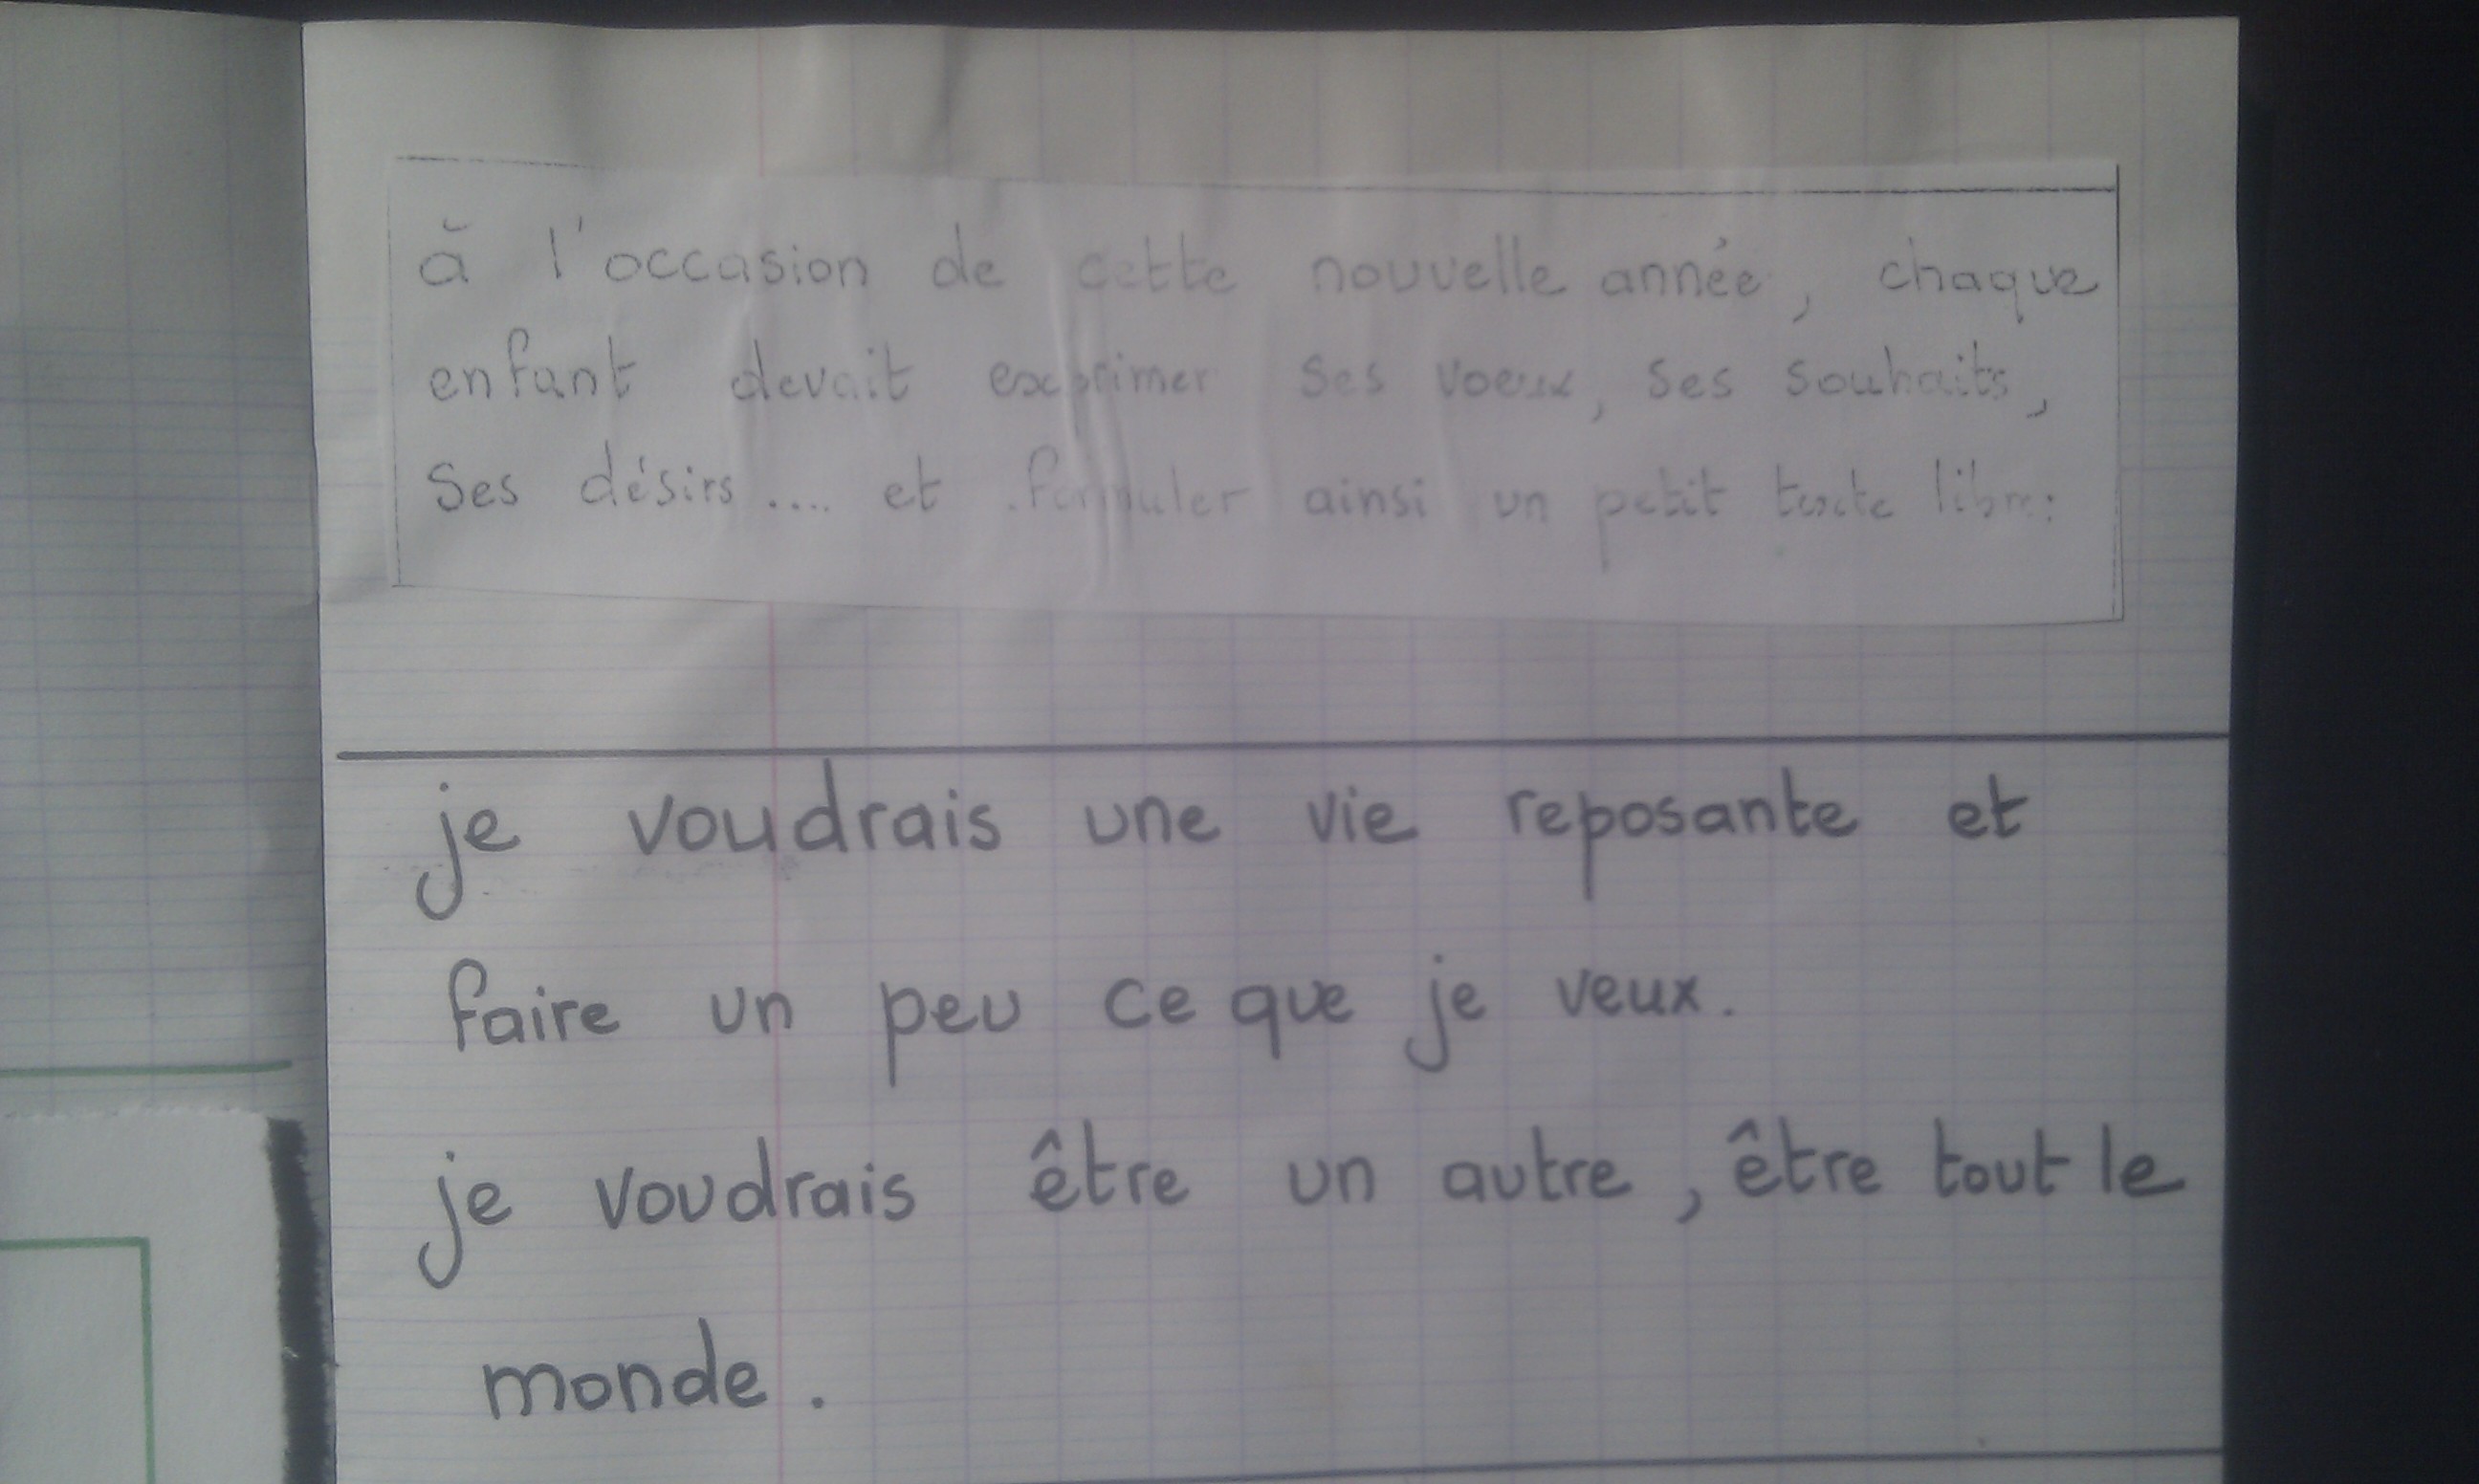 à l'occasion de cette nouvelle année, chaque
enfant devait exprimer ses voeux, ses souhaits,
ses désirs .... et formuler ainsi un petit texte libre:
je voudrais une vie reposante et
faire un peu ce que je veux.
je voudrais être un autre, être tout le
monde.